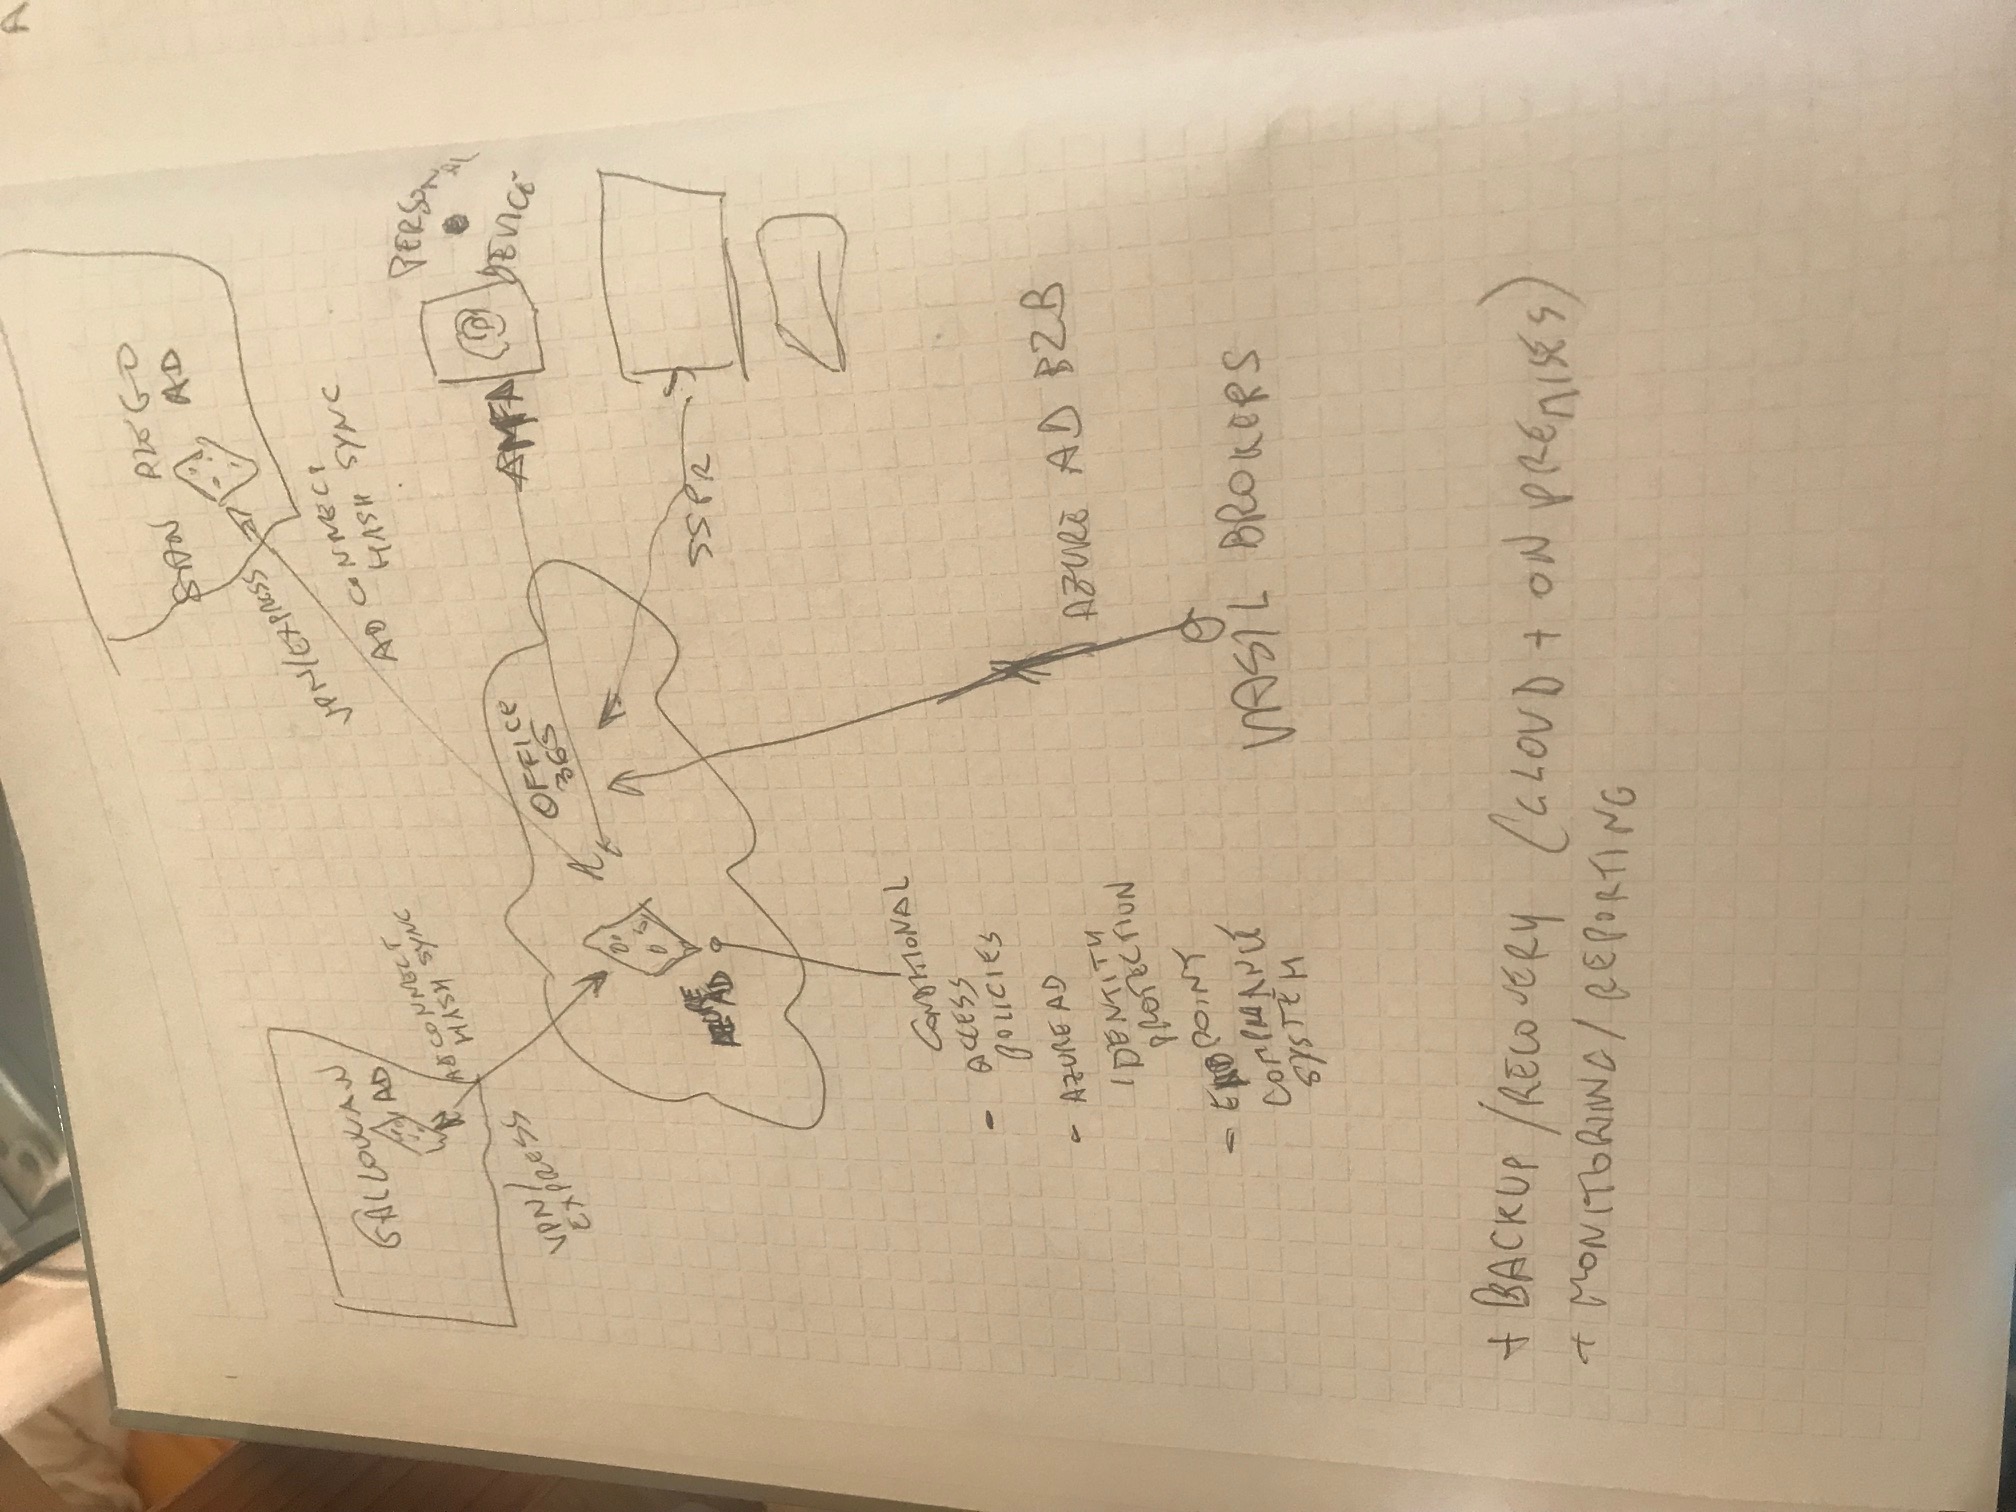 SAN DIEGO
AD
VPN/EXPRESS
AD CONNECT
HASH SYNC
GALLOWAY
AD
AD CONNECT
HASH SYNC
VPN/
EXPRESS
PERSONAL
DEVICE
AMFA
OFFICE
365
AZURE
AD
SSPR
CONDITIONAL
- ACCESS
POLICIES
- AZURE AD
IDENTITY
PROTECTION
- ENDPOINT
COMPLIANCE
SYSTEM
AZURE AD B2B
VASIL BROKERS
+ BACKUP/RECOVERY (CLOUD + ON PREMISES)
+ MONITORING/REPORTING
A